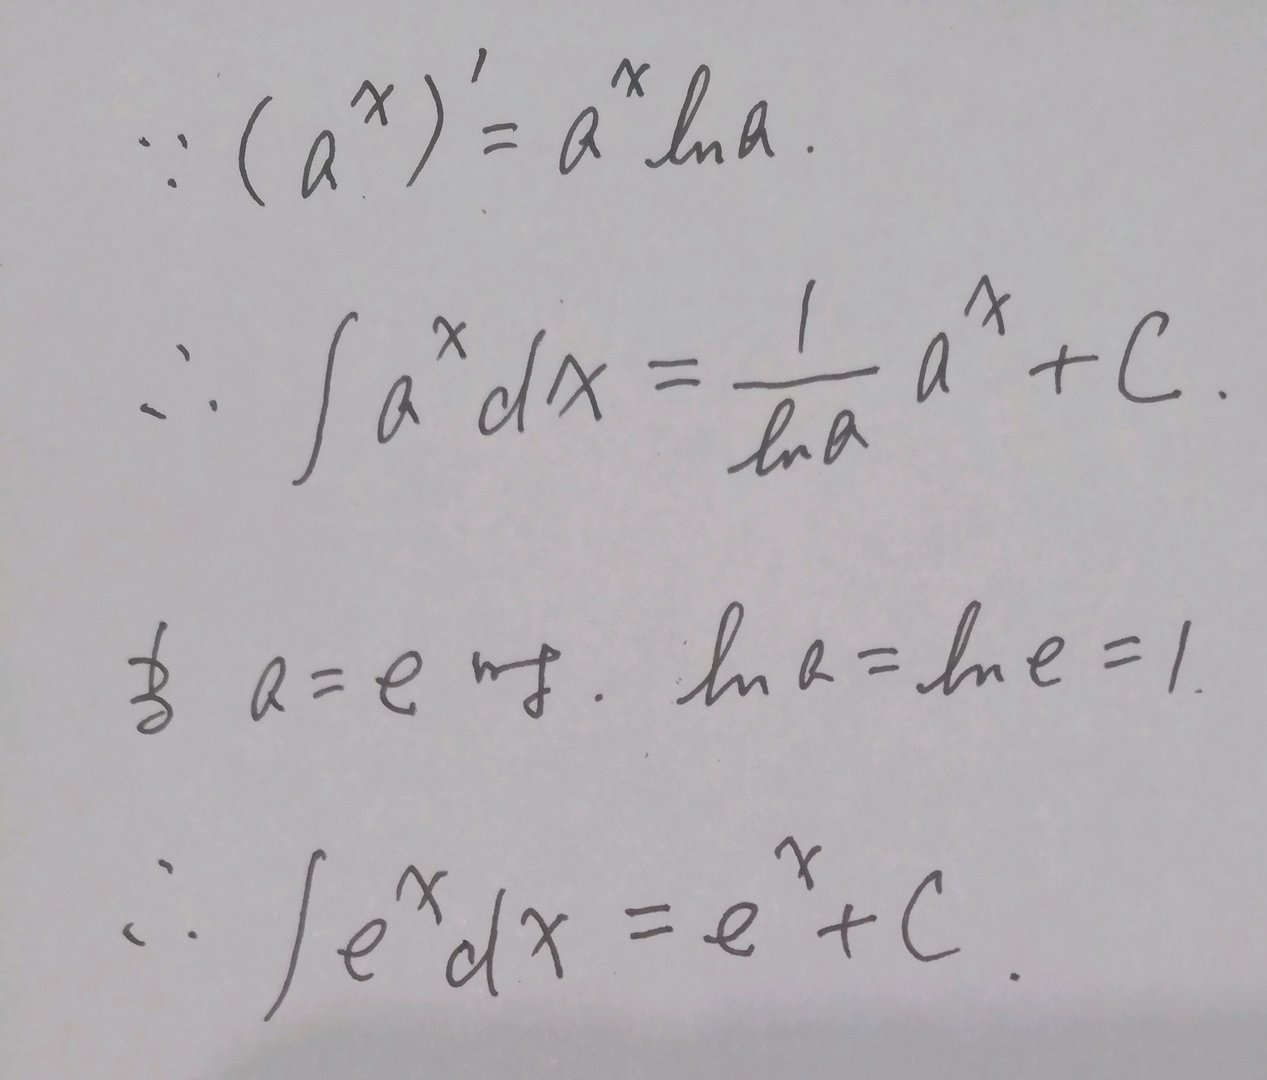 ∵ (a^x)' = a^x ln a.
∴ ∫ a^x dx = 1/ln a a^x + C.
当 a = e 时. ln a = ln e = 1.
∴ ∫ e^x dx = e^x + C.